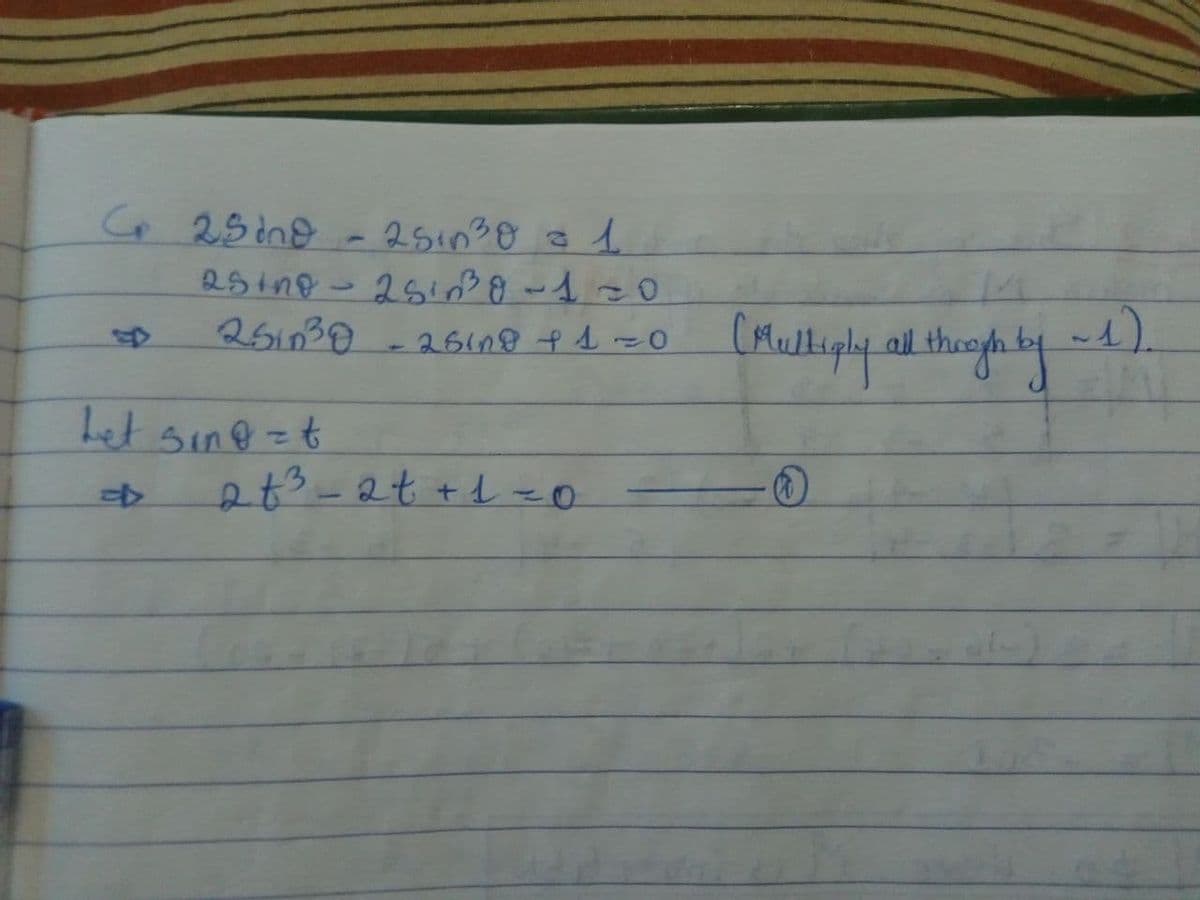 2Sinθ - 2sin³θ = 1
2sinθ - 2sin³θ - 1 = 0
⇒ 2sin³θ - 2sinθ + 1 = 0 (Multiply all throgh by -1).
Let sinθ = t
⇒ 2t³ - 2t + 1 = 0 ——